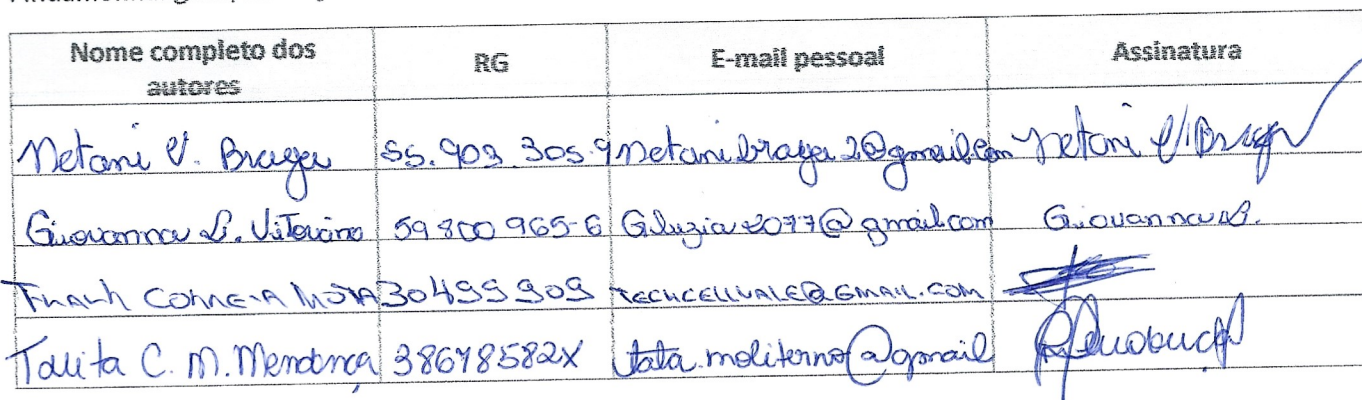 Nome completo dos autores RG E-mail pessoal Assinatura
Netani V. Braga 55.903.305.9 netanibraga2@gmail.com Netani V. Braga
Giovanna L. Vitorino 59800965-6 Giluzia2077@gmail.com Giovanna L.
CORREIA MOTA 30499909 TECHCELLVALE@GMAIL.COM
Talita C. M. Mendonça 38678582X tata.moliterno@gmail